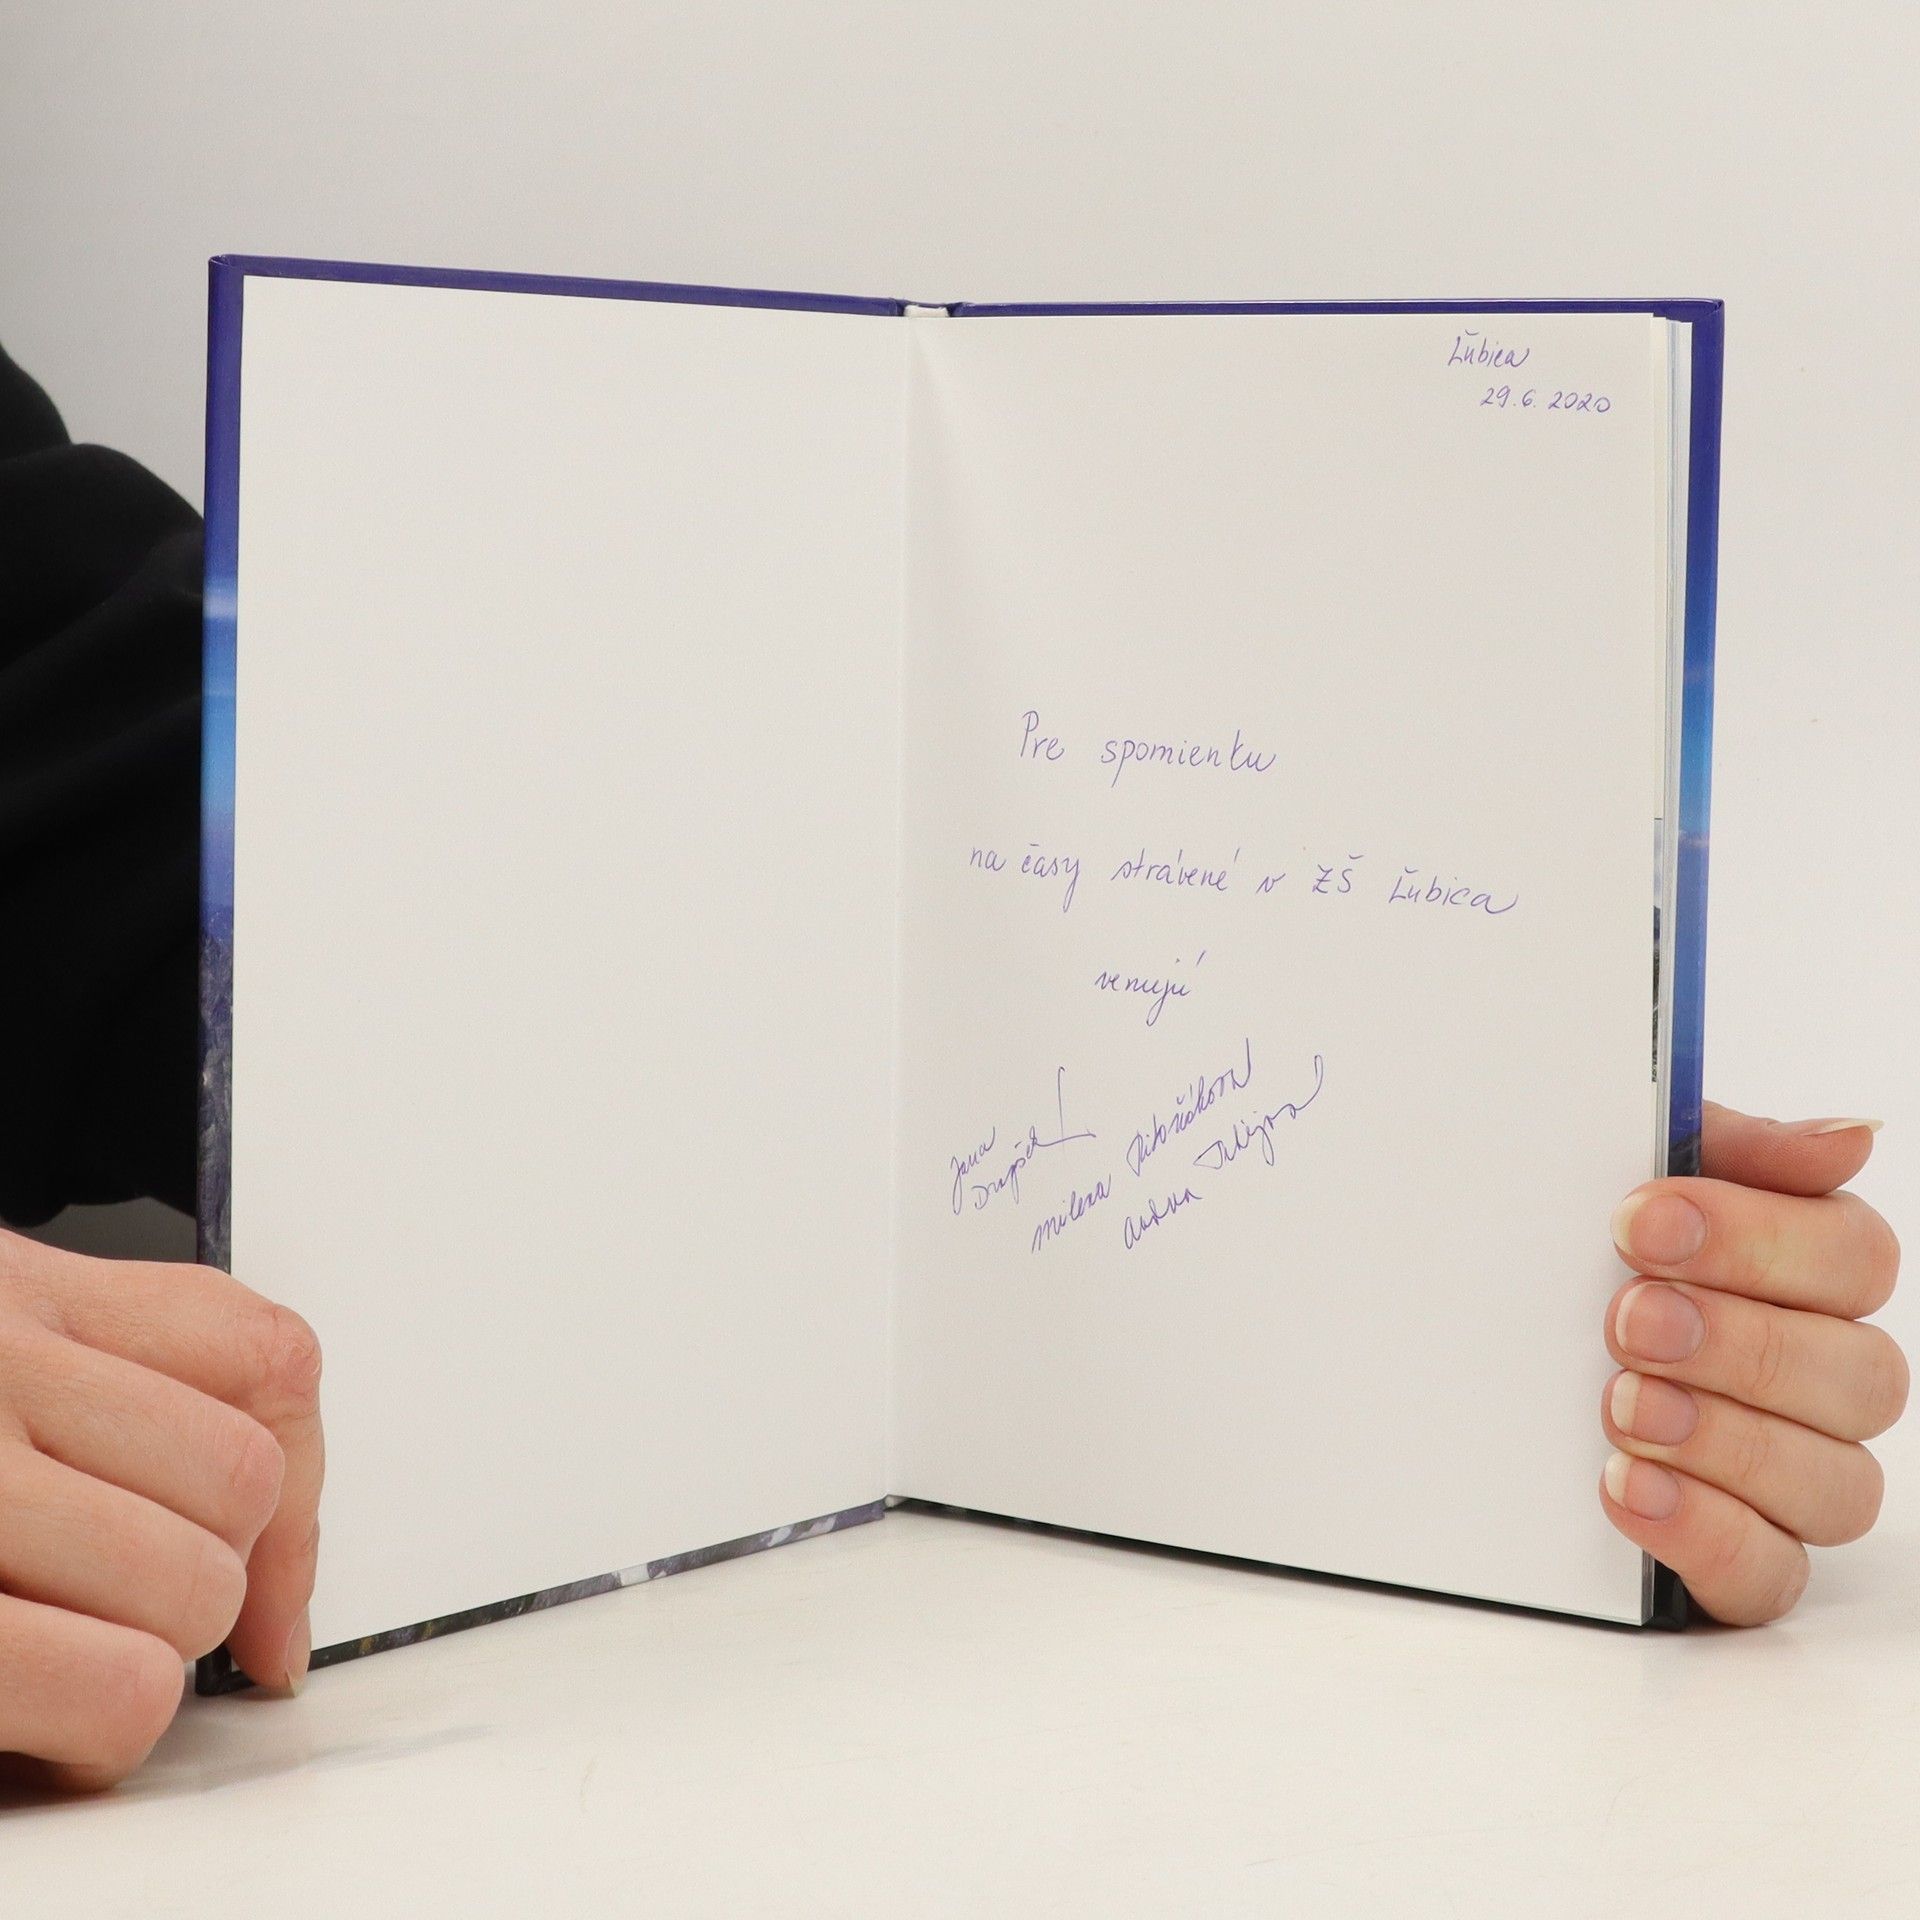 Ľubica
29.6. 2020
Pre spomienku
na časy strávené v ZŠ Ľubica
venujú
Jana
Milena